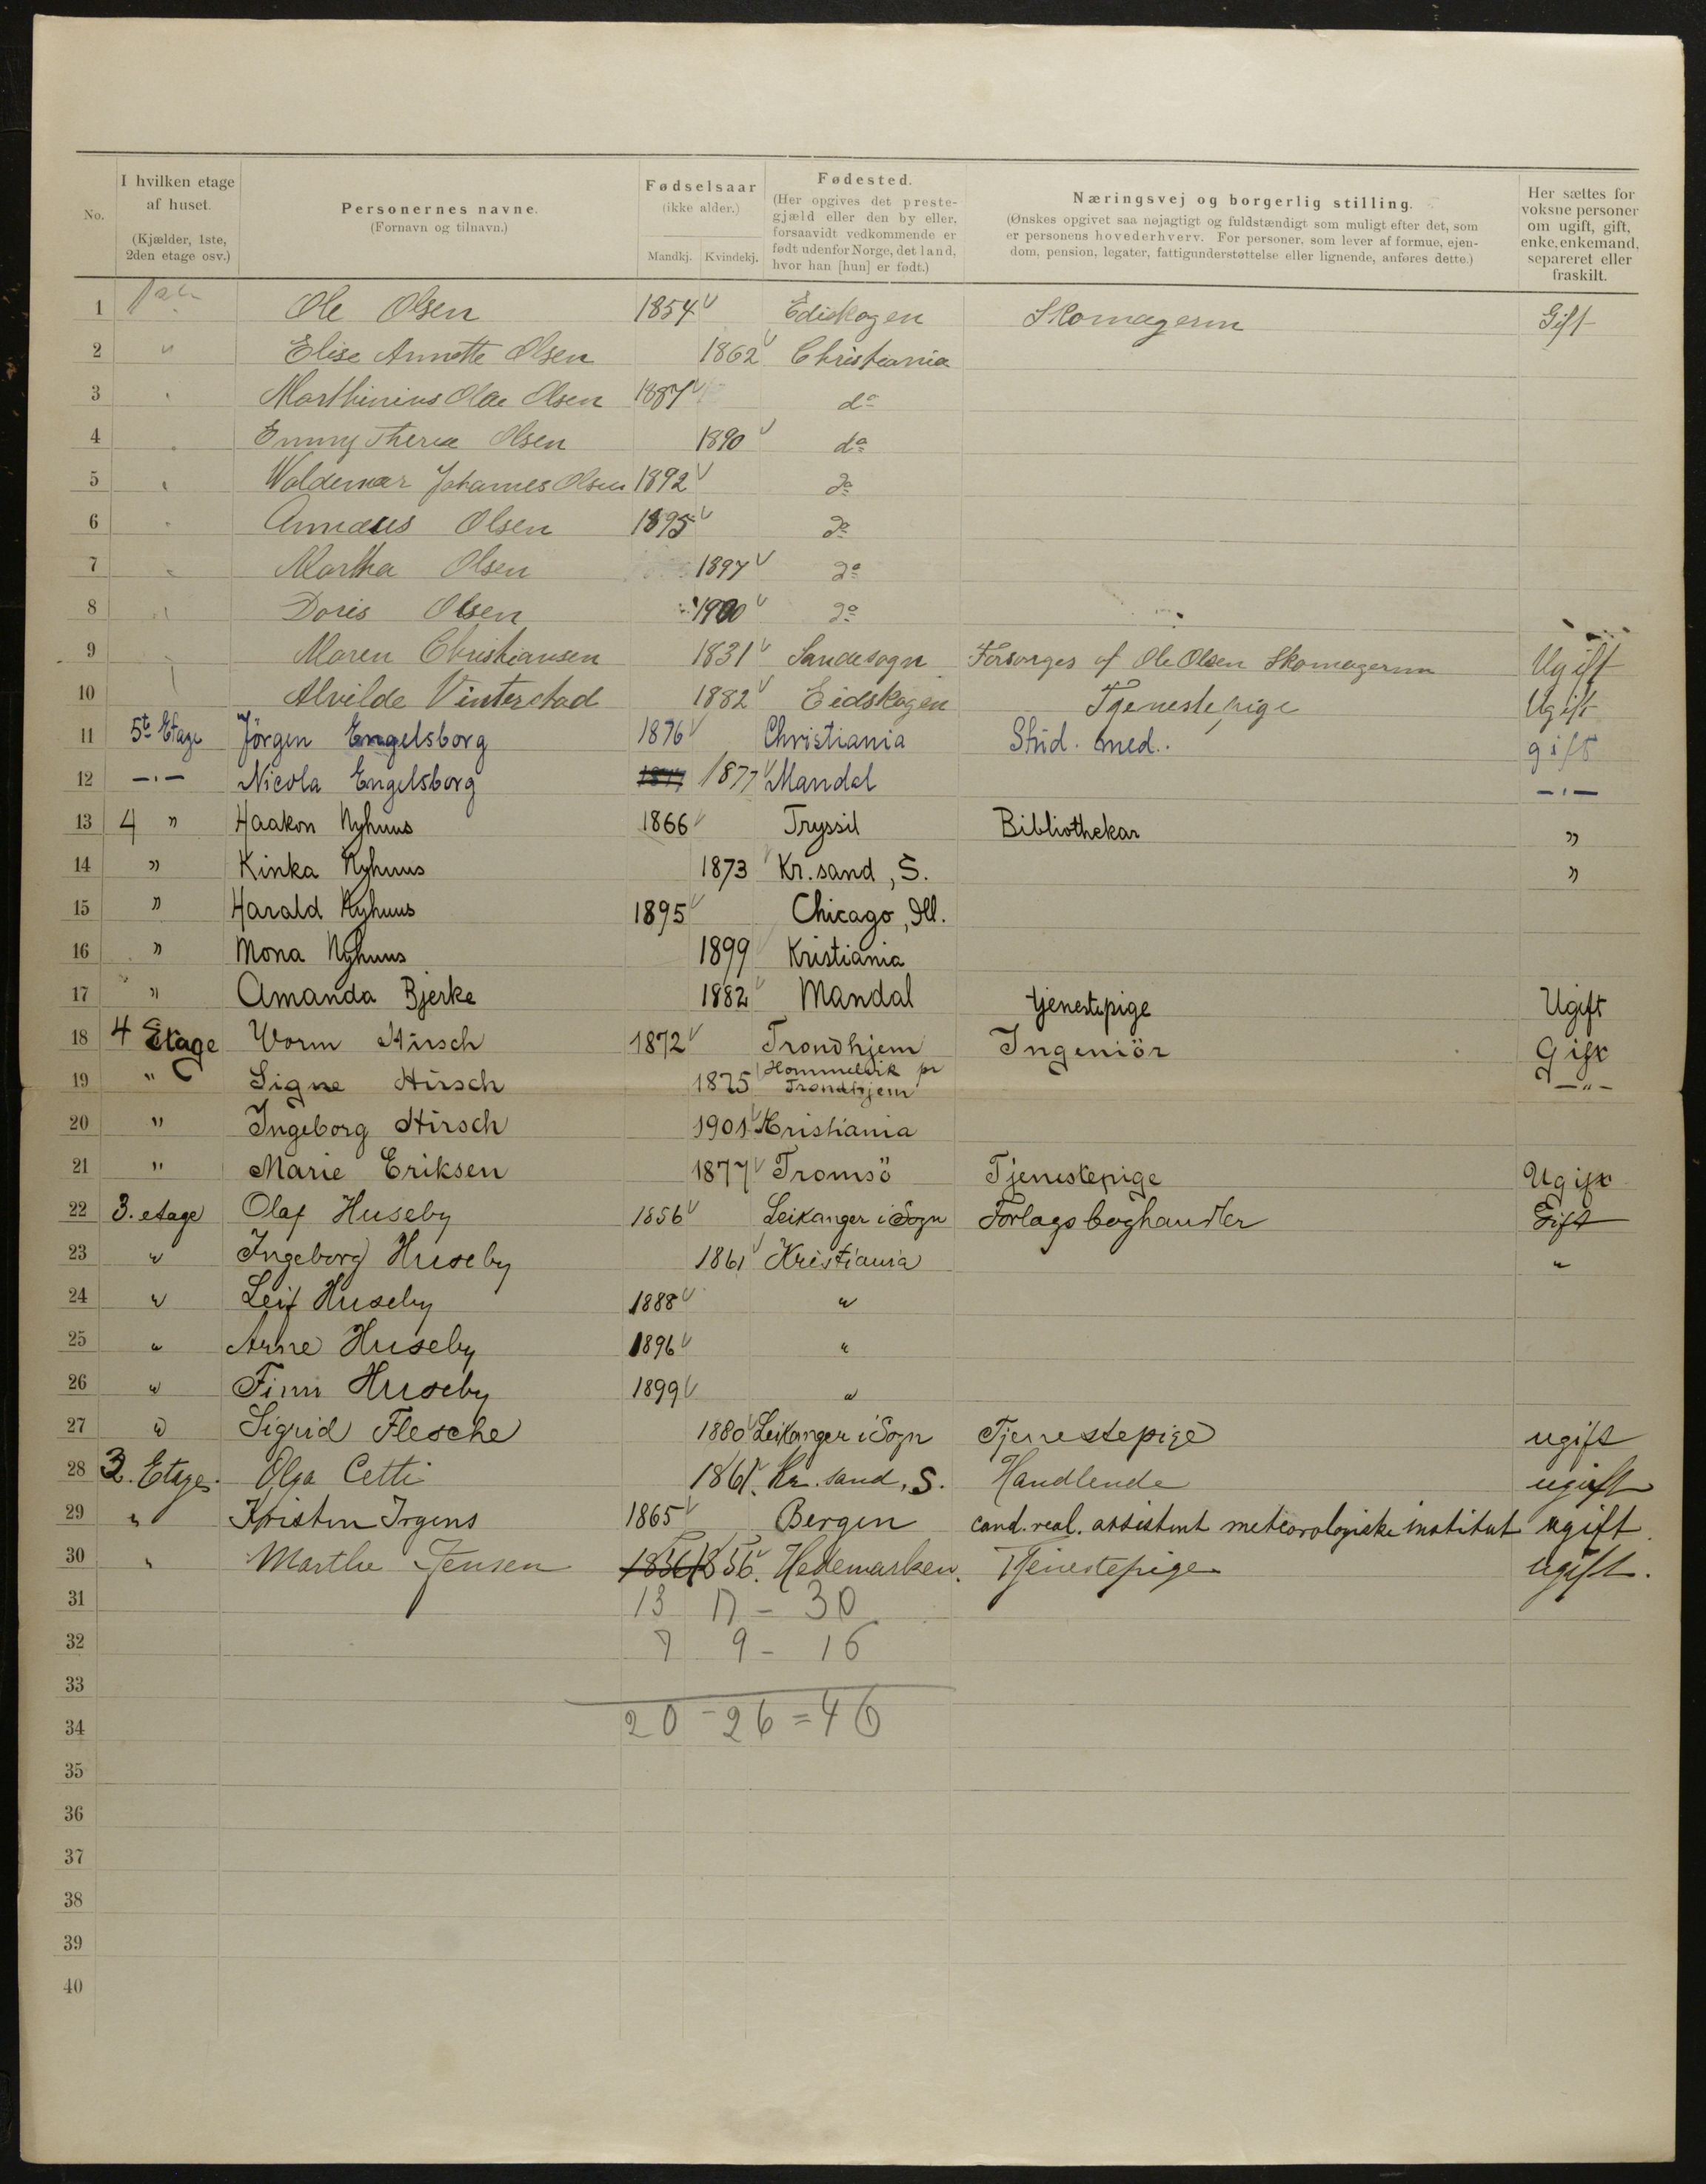 No.
I hvilken etage
af huset.
(Kjælder, 1ste,
2den etage osv.)
Personernes navne.
(Fornavn og tilnavn.)
Fødselsaar
(ikke alder.)
Mandkj. Kvindekj.
Fødested.
(Her opgives det preste-
gjæld eller den by eller,
forsaavidt vedkommende er
født udenfor Norge, det land,
hvor han [hun] er født.)
Næringsvej og borgerlig stilling.
(Ønskes opgivet saa nøjagtigt og fuldstændigt som muligt efter det, som
er personens hovederhverv. For personer, som lever af formue, ejen-
dom, pension, legater, fattigunderstøttelse eller lignende, anføres dette.)
Her sættes for
voksne personer
om ugift, gift,
enke, enkemand,
separeret eller
fraskilt.
1 Ole Olsen 1854 Ediskogen Skomagerm Gift
2 " Elise Annette Olsen 1862 Christiania
3 " Marthinius Olae Olsen 1887 do
4 " Emmy Therea Olsen 1890 do
5 " Waldemar Johannes Olsen 1892 do
6 " Annæus Olsen 1895 do
7 " Martha Olsen 1897 do
8 " Doris Olsen 1900 do
9 Maren Christiansen 1831 Sandesogn Forsørges af Ole Olsen Skomagerm Ugift
10 Alvilde Vinterstad 1882 Eidskogen Tjenestepige Ugift
11 5te Etage Jörgen Engelsborg 1876 Christiania Stud. med. gift
12 —·— Nicola Engelsborg 1877 1877 Mandal —·—
13 4 " Haakon Nyhuus 1866 Tryssil Bibliothekar "
14 " Kinka Nyhuus 1873 Kr.sand, S. "
15 " Harald Nyhuus 1895 Chicago, Ill.
16 " Mona Nyhuus 1899 Kristiania
17 " Amanda Bjerke 1882 Mandal tjenestepige Ugift
18 4 Etage Worm Hirsch 1872 Trondhjem Ingeniör Gift
19 " Signe Hirsch 1875 Hommelvik pr Trondhjem —"—
20 " Ingeborg Hirsch 1901 Kristiania
21 " Marie Eriksen 1877 Tromsö Tjenestepige Ugift
22 3. etage Olaf Huseby 1856 Leikanger i Sogn Forlagsboghandler Gift
23 " Ingeborg Huseby 1861 Kristiania "
24 " Leif Huseby 1888 "
25 " Arne Huseby 1896 "
26 " Finn Huseby 1899 "
27 " Sigrid Flesche 1880 Leikanger i Sogn Tjenestepige ugift
28 3. Etage. Olga Cetti 1861. Kr. sand, S. Handlende ugift
29 " Kristen Irgens 1865 Bergen cand. real. assistent meteorologiske institut ugift.
30 " Marthe Jensen 1856 1856. Hedemarken. Tjenestepige ugift.
31 13 17 – 30
32 7 9 – 16
33
34 20 – 26 = 46
35
36
37
38
39
40